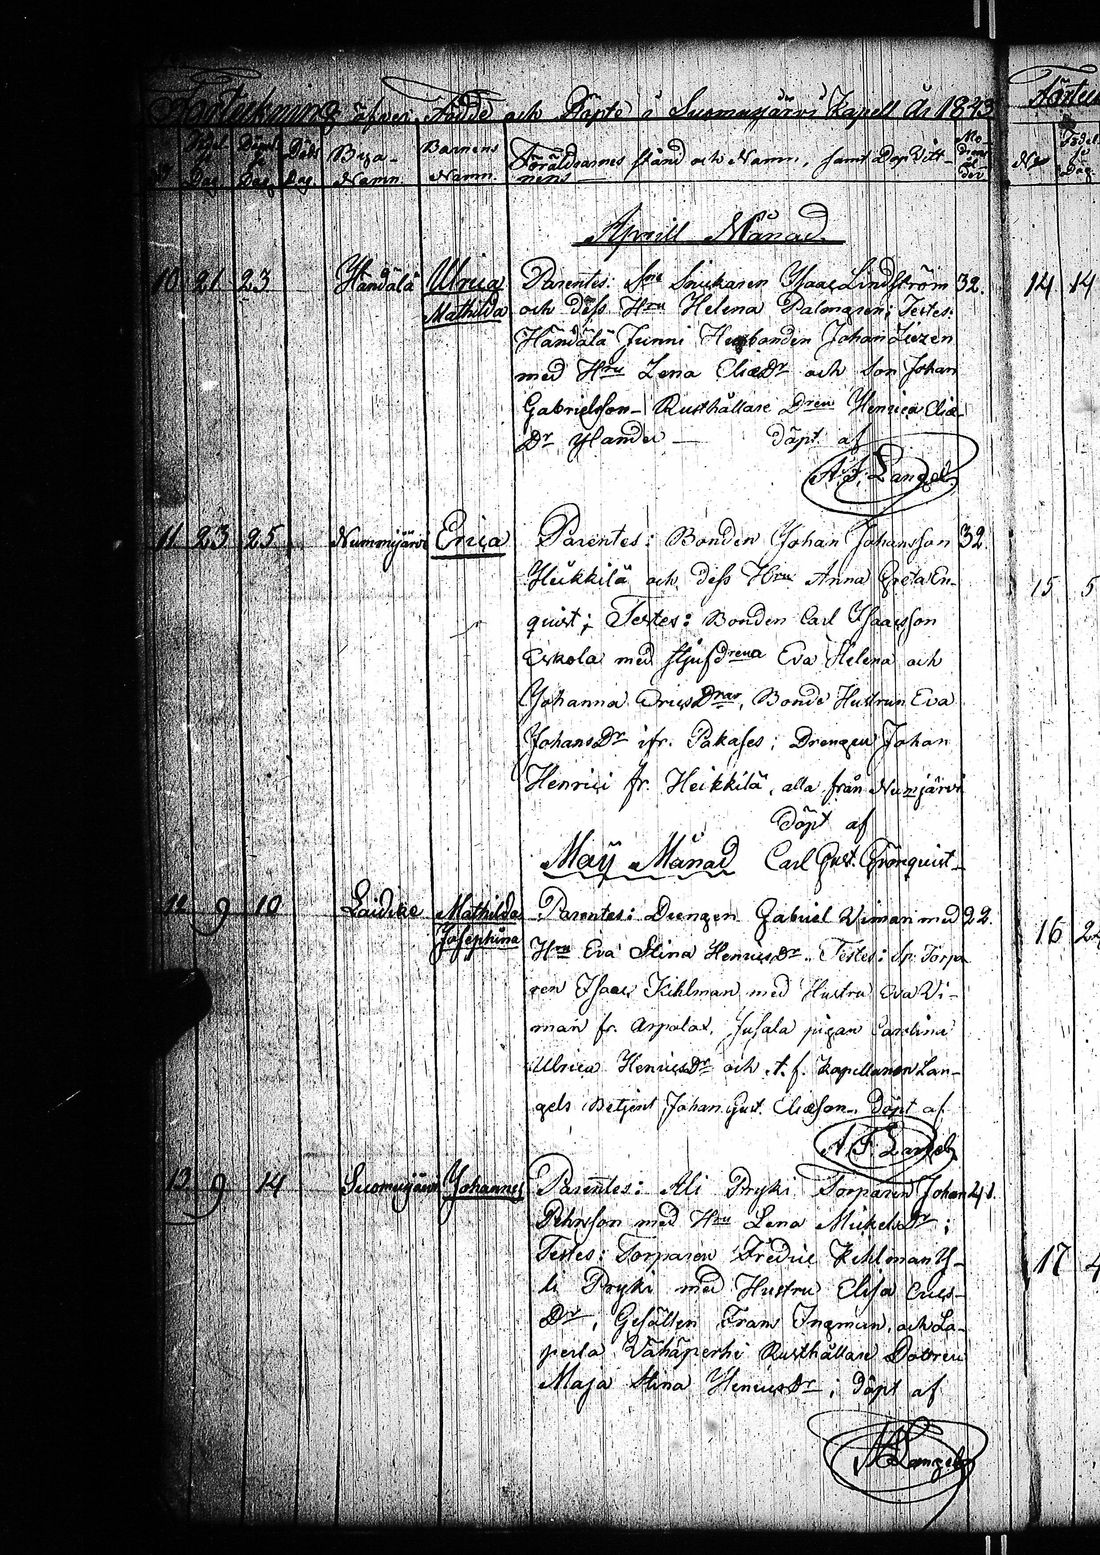 Förteckning öfver Födde och Döpte i Suomusjärvi Kapell År 1823
No Födel se Dag. Döpel se Dag. Döds Dag. Byea- Namn. Barnens Namn. Föräldrarnes stånd och Namn, samt Dop Vitt- nens Mo- drens Ål- der
Aprill Månad.
10 21 23 Händälä Ulrica Parentes: Sne Snickaren Isaac Lindström 32.
Mathilda och dess Hru Helena Palmaren; Testes:
Händälä Junni Husbonden Johan Liezén
med Hru Lena EliæDr och Son Johan
Gabrielsson- Rusthållare Dren Henrica Eliæ-
Dr döpt af
A. F. Langel.
11 23 25 Nummijärvi Erica Parentes: Bonden Johan Johansson 32.
Heikkilä och dess Hru Anna Greta En-
quist; Testes: Bonden Carl Isaacsson
Eskola med Stjufdrena Eva Helena och
Johanna EricsDrar, Bonde Hustrun Eva
JohansDr ifr. Pakases; Drengen Johan
Henrici fr. Heikkilä, alla från Numjärvi
Döpt af
Maÿ Månad Carl Gust. Grönquist
12 9 10 Laidike Mathilda Parentes: Drengen Gabriel Viman med 22.
Josephina Hru Eva Stina HenricsDr. Testes: Sp. Torpa-
ren Isaac Kihlman med Hustru Eva Vi-
man fr. Arpalax, Jusala pigan Carolina
Ulrica HenricsDr och t. f. Kapellanen Lan-
gels Betjent Johan Gust. Eliæson. Döpt af
A. F. Langel
13 9 14 Suomusjärvi Johannes Parentes: Ali Pryki Torparen Johan 41.
Pehrsson med Hru Lena MickelsDr;
Testes: Torparen Fredric Kihlman Y-
li Pryki med Hustru Elisa Erics-
Dr, Gesällen Frans Ingman, och La-
perla Vähäperhi Rusthållare Dottren
Maja Stina HenricsDr; döpt af
A Langel
Förteck
No Födel se Dag
14 14
15 5
16 24
17 4